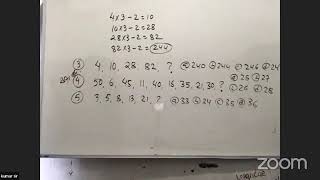 4×3-2=10
10×3-2=28
28×3-2=82
82×3-2=244
③ 4, 10, 28, 82, ? ⓐ 240 ⓑ 244 ⓒ 246 ⓓ 24
④ 50, 6, 45, 11, 40, 16, 35, 21, 30 ? ⓐ 25 ⓑ 27
ⓒ 26 ⓓ 28
⑤ 3, 5, 8, 13, 21, ? ⓐ 33 ⓑ 24 ⓒ 35 ⓓ 36
zoom
kumar sir